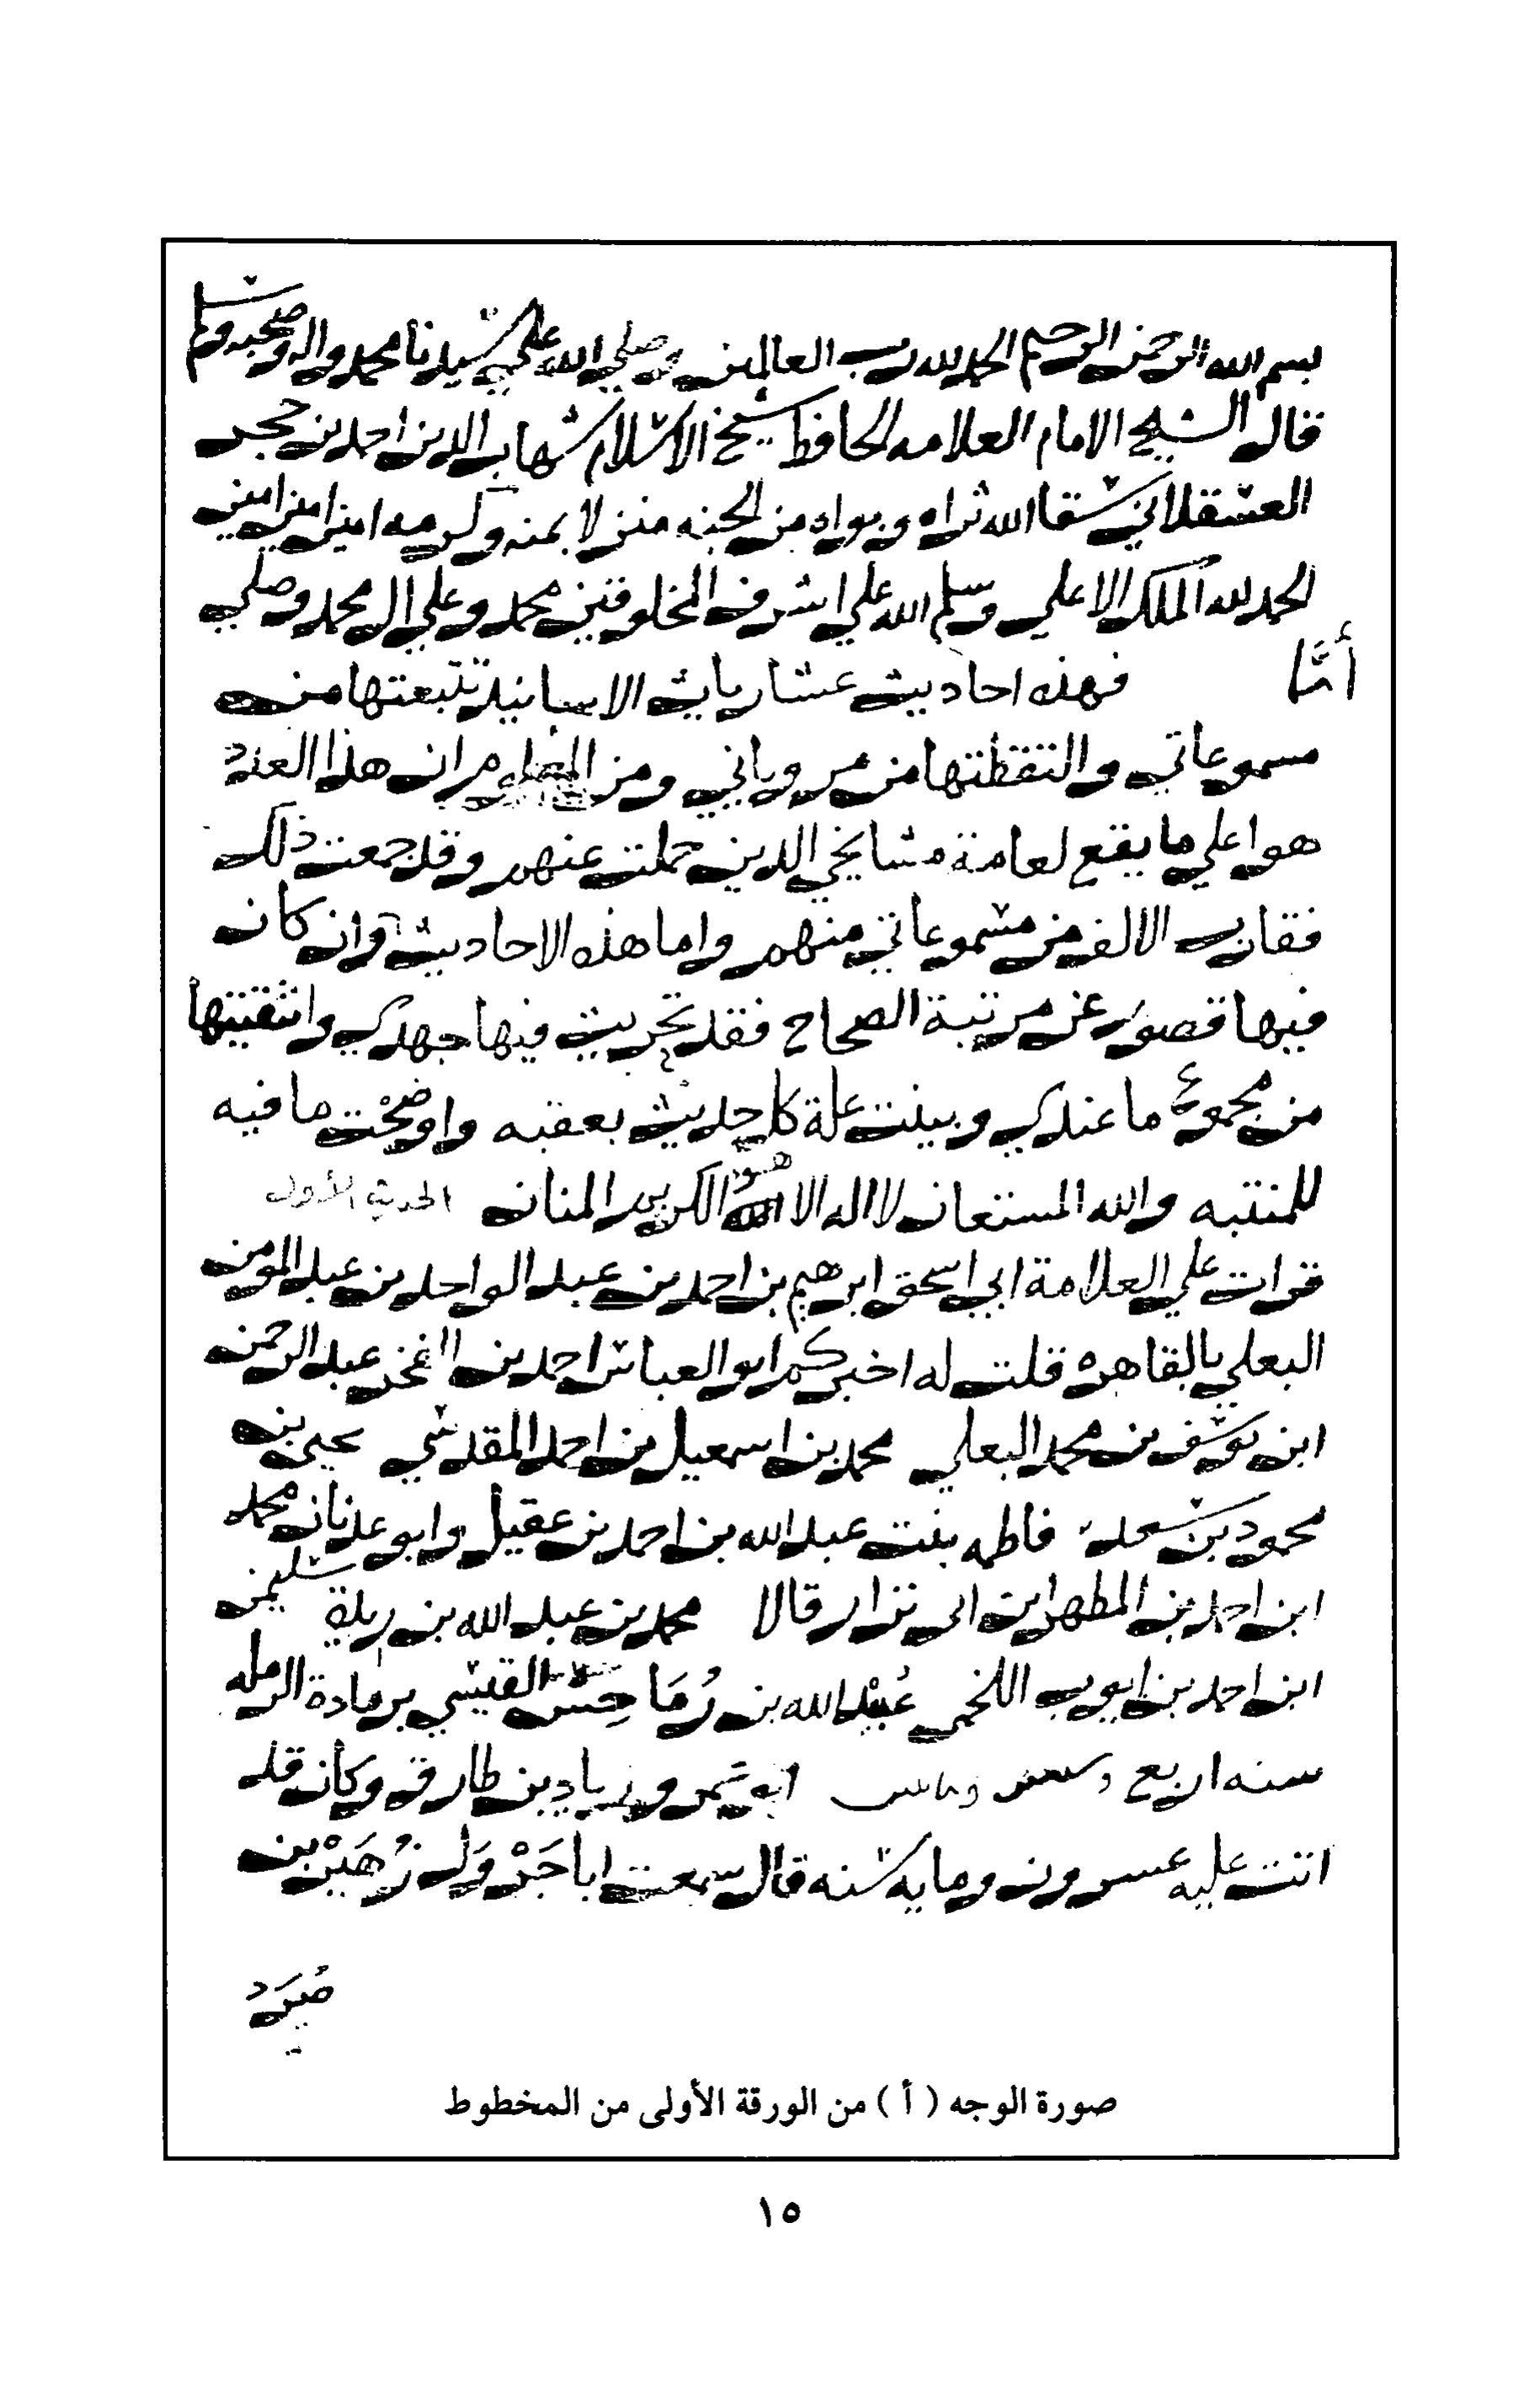 بسم الله الرحمن الرحيم الحمد لله رب العالمين وصلي الله علي سيدنا محمد واله وصحبه وسلم
قال الشيخ الامام العلامه الحافظ شيخ الاسلام شهاب الدين احمد بن حجر
العسقلاني سقا الله ثراه وبواه من الجنه منزلا بمنه وكرمه امين امين امين
الحمد لله الملك الاعلي وسلم الله علي اشرف المخلوقين محمد وعلي ال محمد وصلي
أمَّا فهذه احاديث عشاريات الاسانيد تتبعتها من
مسموعاتي والتقطتها من مروياتي ومن المعلوم ان هذا العدد
هو اعلي ما يقع لعامة مشايخي الدين حملت عنهم وقد جمعت ذلك
فقارب الالف من مسموعاتي منهم واما هذه الاحاديث وان كان
فيها قصور عن مرتبة الصحاح فقد تحريت فيها جهدي وانتقيتها
من مجموع ما عندي وبينت علة كل حديث بعقبه واوضحت ما فيه
للمنتبه والله المستعان لا اله الا هو الكريم المنان الحديث الأول
قرات علي العلامة ابي اسحق ابرهيم بن احمد بن عبد الواحد بن عبد المومن
البعلي بالقاهره قلت له اخبركم ابو العباس احمد بن الفخر عبد الرحمن
ابن يوسف بن محمد البعلي محمد بن اسمعيل بن احمد المقدسي يحيى بن
محمود بن سعد فاطمه بنت عبد الله بن احمد بن عقيل وابو عدنان محمد
ابن احمد بن المطهر ابن ابي نزار قالا محمد بن عبد الله بن ريذة سليمن
ابن احمد بن ايوب اللخمي عُبيْد الله بن رُمَاحِس القيسي برمادة الرمله
سنه اربع وسبعين ومائتين ابو عمرو زياد بن طارق وكان قد
اتت عليه عشرون ومايه سنه قال سمعت ابا جَرْوَل زُهَيْر بن
صُرَد
صورة الوجه ( أ ) من الورقة الأولى من المخطوط
١٥